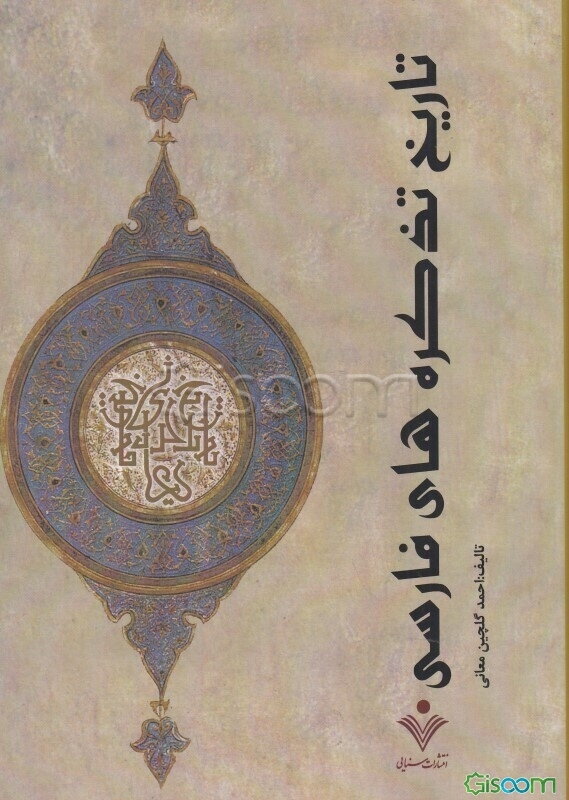 تاریخ تذکره های فارسی
تالیف:احمد گلچین معانی
انتشارات سنایی
Gisoom
gisoom